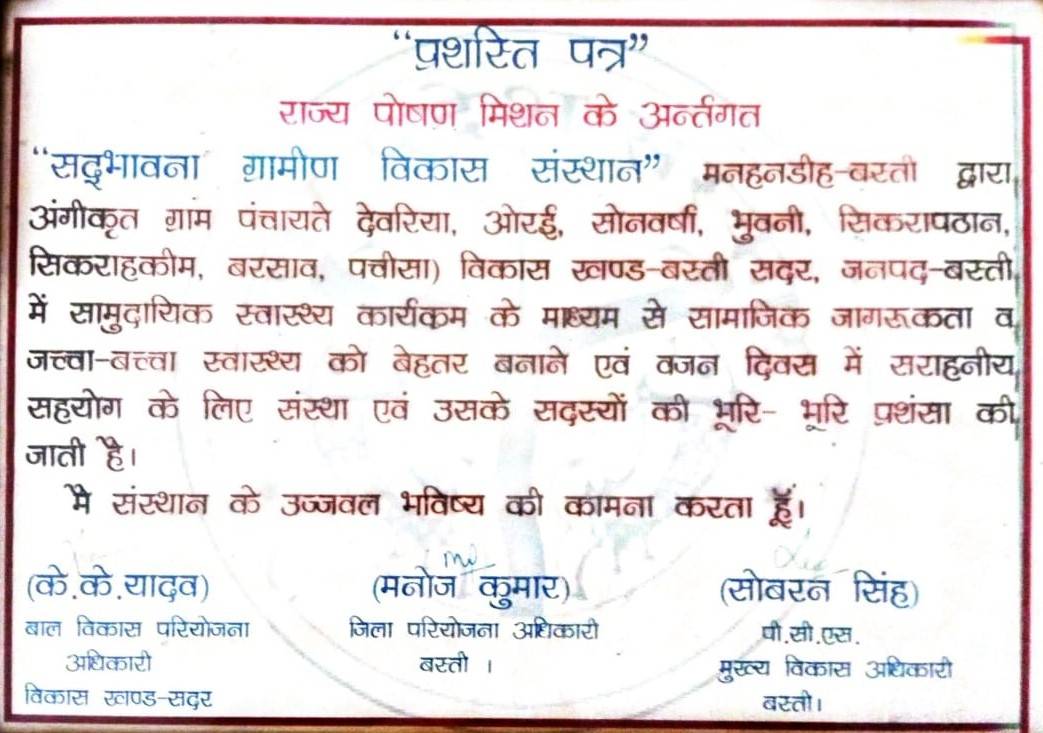 “प्रशस्ति पत्र”
राज्य पोषण मिशन के अर्न्तगत
“सद्भावना ग्रामीण विकास संस्थान” मनहनडीह-बस्ती द्वारा
अंगीकृत ग्राम पंचायते देवरिया, ओरई, सोनवर्षा, भुवनी, सिकरापठान,
सिकराहकीम, बरसाव, पचीसा) विकास खण्ड-बस्ती सदर, जनपद-बस्ती
में सामुदायिक स्वास्थ्य कार्यकम के माध्यम से सामाजिक जागरूकता व
जच्चा-बच्चा स्वास्थ्य को बेहतर बनाने एवं वजन दिवस में सराहनीय
सहयोग के लिए संस्था एवं उसके सदस्यों की भूरि- भूरि प्रशंसा की
जाती है।
मै संस्थान के उज्जवल भविष्य की कामना करता हूँ।
(के.के.यादव) (मनोज कुमार) (सोबरन सिंह)
बाल विकास परियोजना जिला परियोजना अधिकारी पी.सी.एस.
अधिकारी बस्ती । मुख्य विकास अधिकारी
विकास खण्ड-सदर बस्ती।